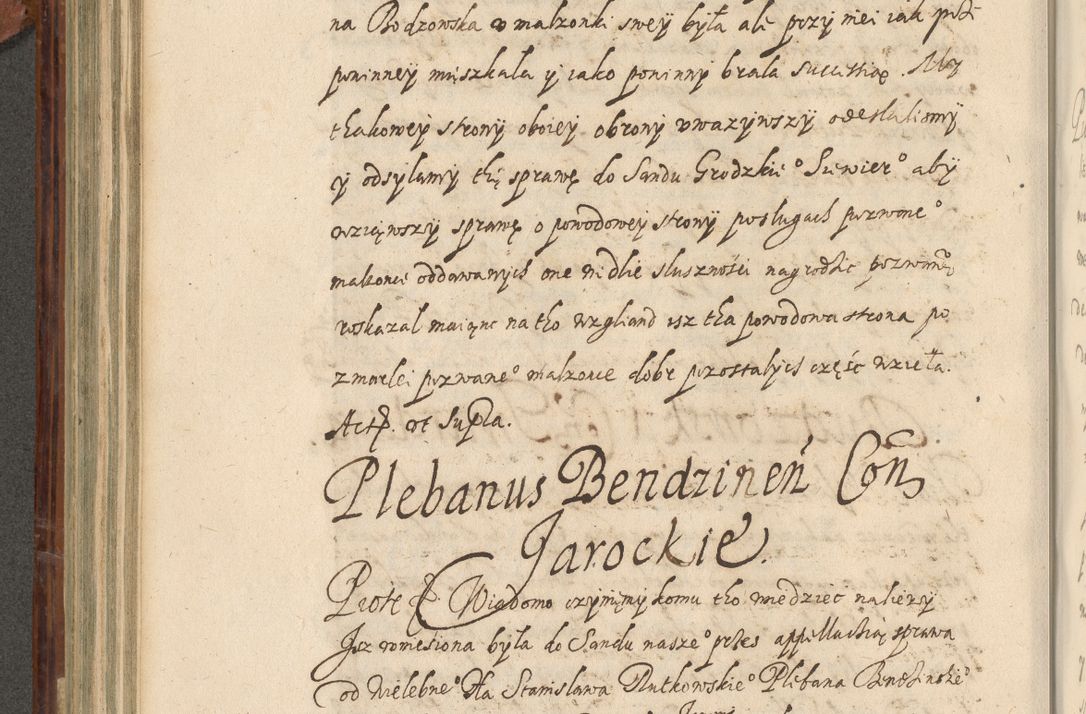 na Bodzowska w malzonki swey była ale przy niei iak przi
powinney mięszkala y iako powinny brala succathią. My
thakowey strony oboiey obrony vwazywszy odeslalismy
y odsylamy thę sprawę do Sandu Grodzkie° Siewier° aby
wziąwszy sprawę o powodowey strony poslugach pozwone°
malzonce oddawanych one wedlie slusznosci nagrodzic pozwan°
roskazal maiąnc na tho wzgliand isz tha powodowa strona po
zmarlei pozwane° malzonce dobr pozostalych część wzieła.
Act. ut supra.
Plebanus Bendzineń Con
Jarockie.
Piotr &c Wiadomo czynięmy komu tho wiedziec nalieży
Jsz wniesiona była do Sandu nasze° przes appellathią sprawa
od Wielebne° Xa Stanislawa Rutkowskie° Plebana Bendzinskie°